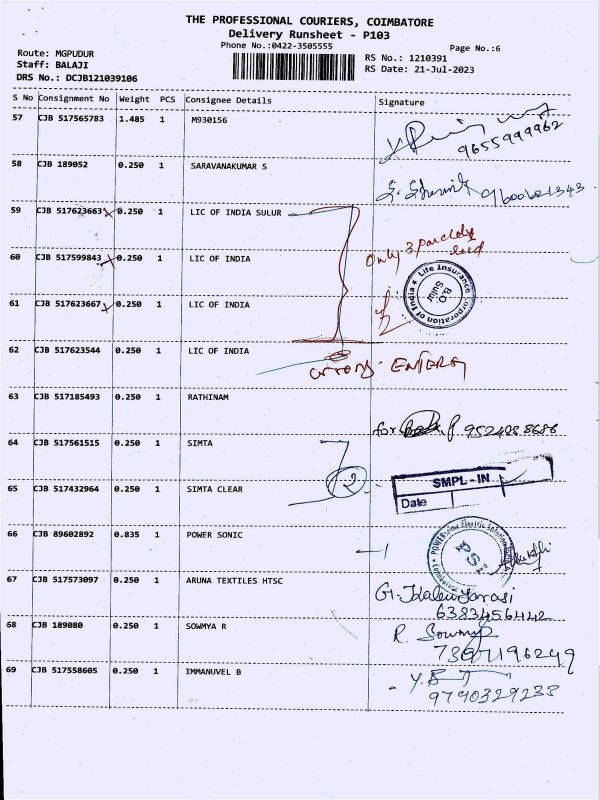 THE PROFESSIONAL COURIERS, COIMBATORE
Delivery Runsheet - P103
Phone No.:0422-3505555
Page No.:6
Route: MGPUDUR
Staff: BALAJI
DRS No.: DCJB121039106
RS No.: 1210391
RS Date: 21-Jul-2023
S No Consignment No Weight PCS Consignee Details Signature
57 CJB 517565783 1.485 1 M930156
9655999962
58 CJB 189052 0.250 1 SARAVANAKUMAR S
59 CJB 517623663 0.250 1 LIC OF INDIA SULUR
Only 3
60 CJB 517599843 0.250 1 LIC OF INDIA
Life Insurance Corporation of India
B.O
Sulur
61 CJB 517623667 0.250 1 LIC OF INDIA
62 CJB 517623544 0.250 1 LIC OF INDIA
wrong ENTERY
63 CJB 517185493 0.250 1 RATHINAM
for 9524888686
64 CJB 517561515 0.250 1 SIMTA
2
SMPL-IN
Date
65 CJB 517432964 0.250 1 SIMTA CLEAR
66 CJB 89602892 0.835 1 POWER SONIC
67 CJB 517573097 0.250 1 ARUNA TEXTILES HTSC
6383456442
68 CJB 189080 0.250 1 SOWMYA R
R. Sowmya
7397196249
69 CJB 517558605 0.250 1 IMMANUVEL B
9790329233